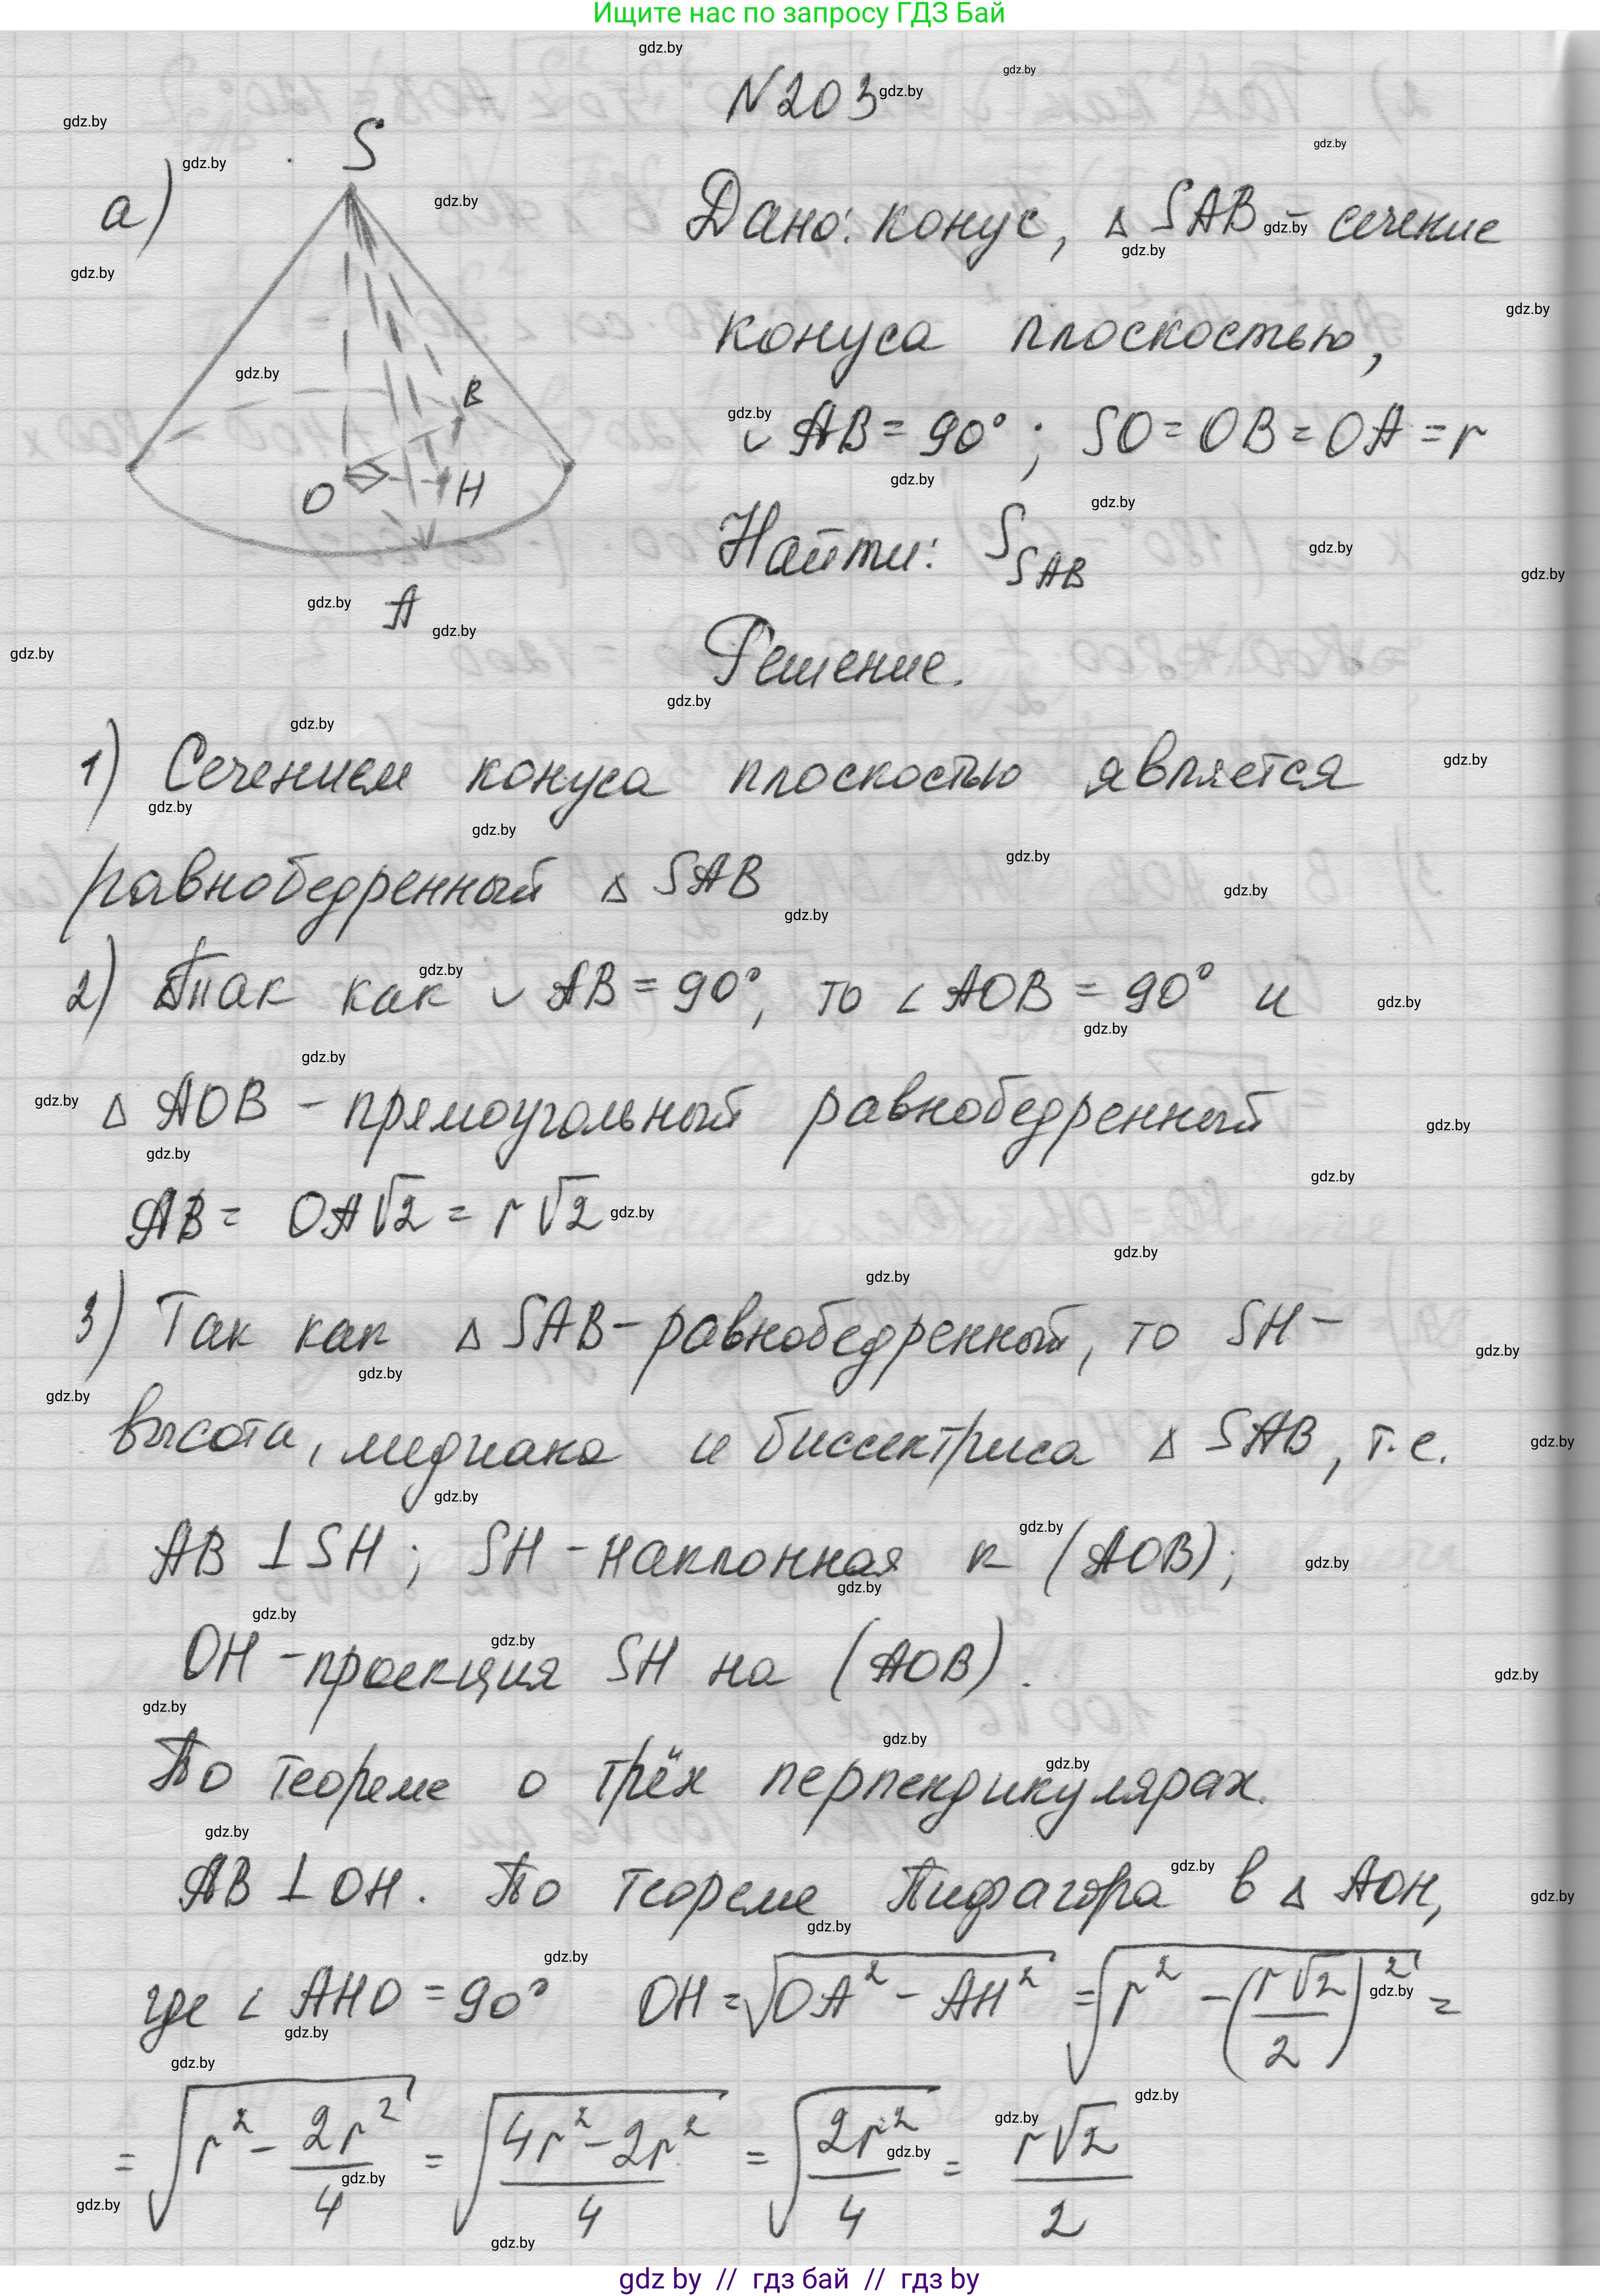 Ищите нас по запросу ГДЗ Бай
N203
а)
S
B
O
H
A
Дано: конус, △ SAB – сечение
конуса плоскостью,
◡ AB = 90° ; SO = OB = OA = r
Найти: S_SAB
Решение.
1) Сечением конуса плоскостью является
равнобедренный △ SAB
2) Так как ◡ AB = 90°, то ∠ AOB = 90° и
△ AOB – прямоугольный равнобедренный
AB = OA√2 = r√2
3) Так как △ SAB – равнобедренный, то SH –
высота, медиана и биссектриса △ SAB, т.е.
AB ⊥ SH ; SH – наклонная к (AOB);
OH – проекция SH на (AOB).
По теореме о трёх перпендикулярах.
AB ⊥ OH. По теореме Пифагора в △ AOH,
где ∠ AHO = 90° OH = √(OA² – AH²) = √(r² – (r√2/2)²) =
= √(r² – 2r²/4) = √((4r² – 2r²)/4) = √(2r²/4) = r√2/2
gdz by // гдз бай // гдз by